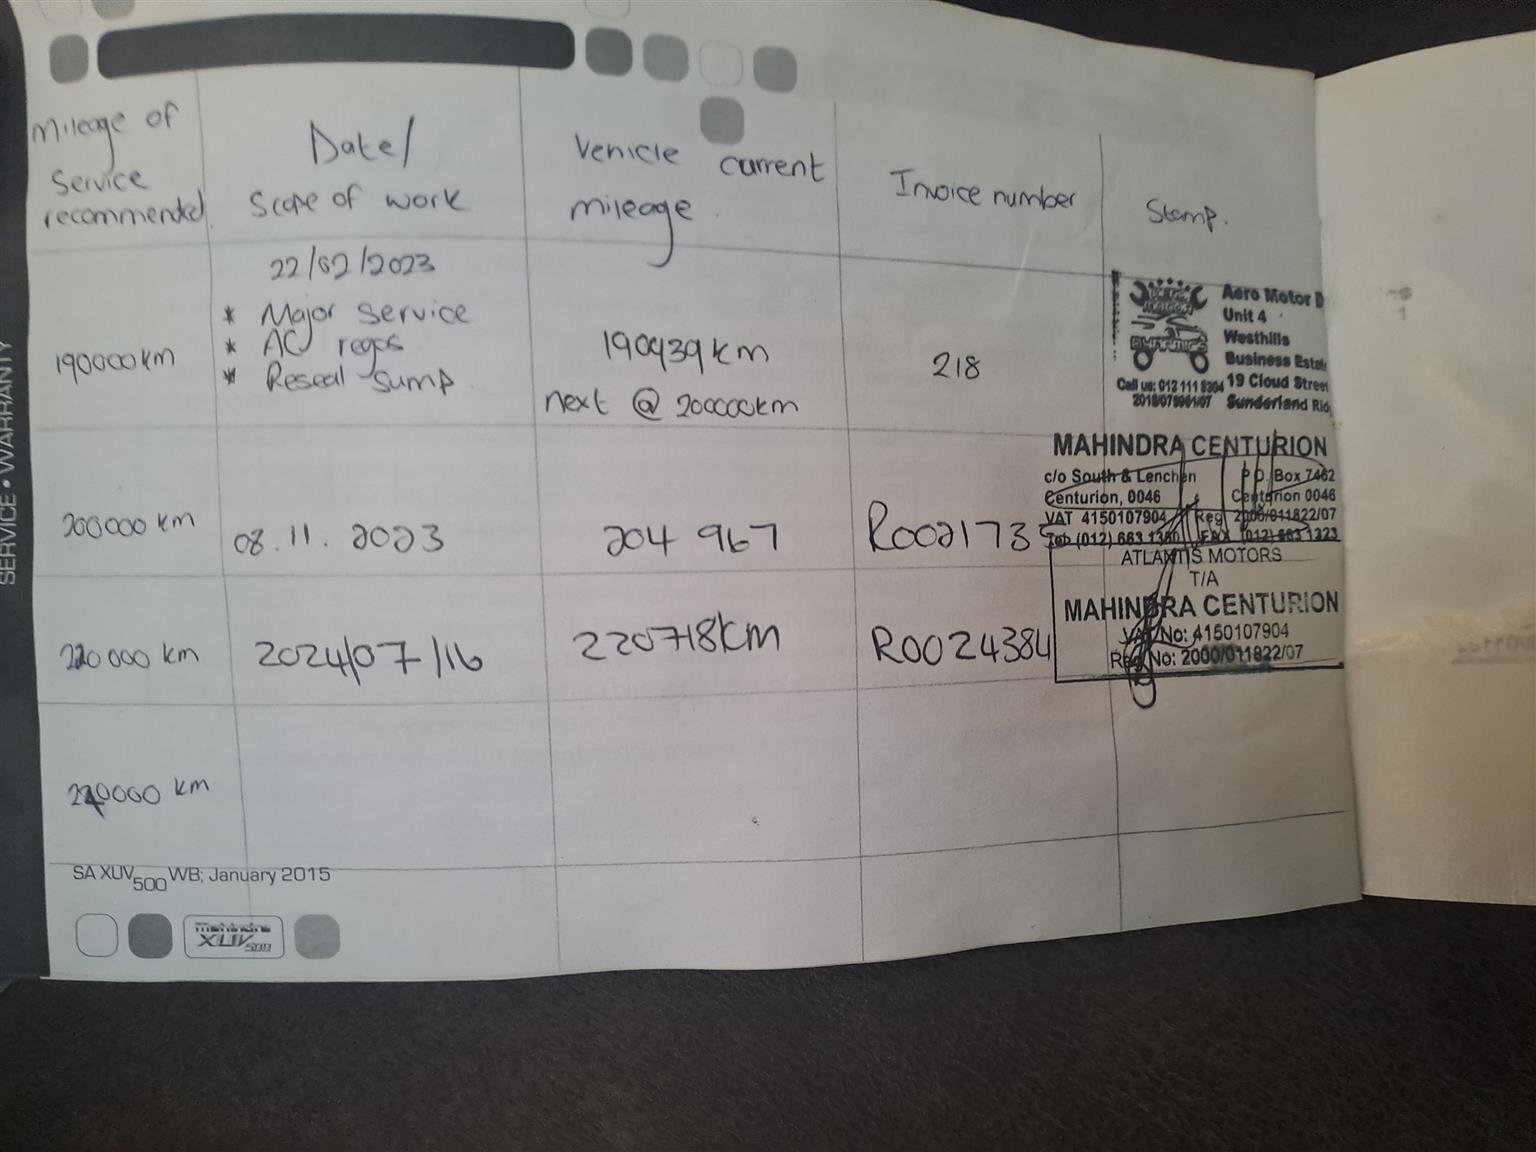 Mileage of
Service
recommended
Date/
Scope of work
Vehicle current
mileage
Invoice number
Stamp.
190000km
22/02/2023
* Major service
* AC regas
* Reseal sump
190939km
next @ 200000km
218
Aero Motor D
Unit 4
Westhills
Business Estate
19 Cloud Street
Sunderland Rid
Call us: 012 111 8304
200000 km
08.11.2023
204 967
R0021735
MAHINDRA CENTURION
c/o South & Lenchen P.O. Box 7462
Centurion, 0046 Centurion 0046
VAT 4150107904 Reg 2000/011822/07
FAX (012) 663 1323
220 000 km
2024/07/16
220718km
R0024384
ATLANTIS MOTORS
T/A
MAHINDRA CENTURION
VAT No: 4150107904
Reg No: 2000/011822/07
km
SERVICE • WARRANTY
SA XUV500 WB; January 2015
mahindra
XUV500